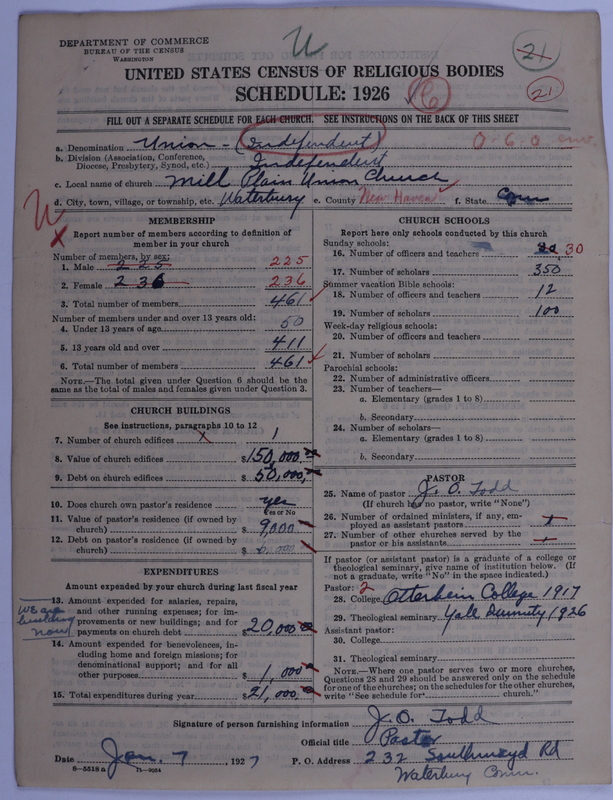 DEPARTMENT OF COMMERCE
BUREAU OF THE CENSUS
WASHINGTON
21
UNITED STATES CENSUS OF RELIGIOUS BODIES
SCHEDULE: 1926
6
21
FILL OUT A SEPARATE SCHEDULE FOR EACH CHURCH. SEE INSTRUCTIONS ON THE BACK OF THIS SHEET
a. Denomination Union - (Independent)
b. Division (Association, Conference, Diocese, Presbytery, Synod, etc.) Independent
c. Local name of church Mill Plain Union Church
d. City, town, village, or township, etc. Waterbury e. County New Haven f. State Conn
MEMBERSHIP
Report number of members according to definition of member in your church
Number of members, by sex:
1. Male 225 225
2. Female 236 236
3. Total number of members 461
Number of members under and over 13 years old:
4. Under 13 years of age 50
5. 13 years old and over 411
6. Total number of members 461
NOTE.—The total given under Question 6 should be the same as the total of males and females given under Question 3.
CHURCH BUILDINGS
See instructions, paragraphs 10 to 12
7. Number of church edifices 1
8. Value of church edifices $150,000
9. Debt on church edifices $50,000
10. Does church own pastor's residence yes
Yes or No
11. Value of pastor's residence (if owned by church) $9,000
12. Debt on pastor's residence (if owned by church) $
EXPENDITURES
Amount expended by your church during last fiscal year
We are building now
13. Amount expended for salaries, repairs, and other running expenses; for improvements or new buildings; and for payments on church debt $20,000
14. Amount expended for benevolences, including home and foreign missions; for denominational support; and for all other purposes $1,000
15. Total expenditures during year $21,000
CHURCH SCHOOLS
Report here only schools conducted by this church
Sunday schools:
16. Number of officers and teachers 30
17. Number of scholars 350
Summer vacation Bible schools:
18. Number of officers and teachers 12
19. Number of scholars 100
Week-day religious schools:
20. Number of officers and teachers
21. Number of scholars
Parochial schools:
22. Number of administrative officers
23. Number of teachers—
a. Elementary (grades 1 to 8)
b. Secondary
24. Number of scholars—
a. Elementary (grades 1 to 8)
b. Secondary
PASTOR
25. Name of pastor J. O. Todd
(If church has no pastor, write "None")
26. Number of ordained ministers, if any, employed as assistant pastors
27. Number of other churches served by the pastor or his assistants
If pastor (or assistant pastor) is a graduate of a college or theological seminary, give name of institution below. (If not a graduate, write "No" in the space indicated.)
Pastor: 2
28. College Otterbein College 1917
29. Theological seminary Yale Divinity 1926
Assistant pastor:
30. College
31. Theological seminary
NOTE.—Where one pastor serves two or more churches, Questions 28 and 29 should be answered only on the schedule for one of the churches; on the schedules for the other churches, write "See schedule for church."
Signature of person furnishing information J. O. Todd
Official title Pastor
Date Jan. 7, 1927 P. O. Address 232 Southmayd Rd
6—5518 a 11—9054
Waterbury Conn.